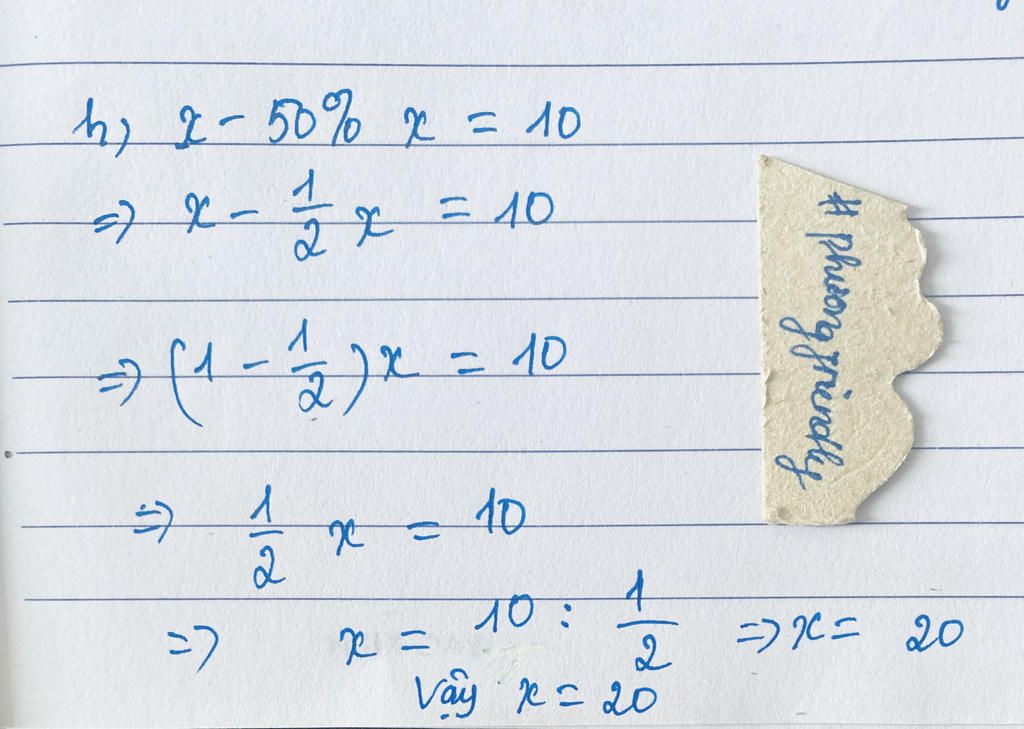 h, x - 50% x = 10
=> x - 1/2 x = 10
=> (1 - 1/2) x = 10
=> 1/2 x = 10
=> x = 10 : 1/2 => x = 20
Vậy x = 20
#phuongfriendly